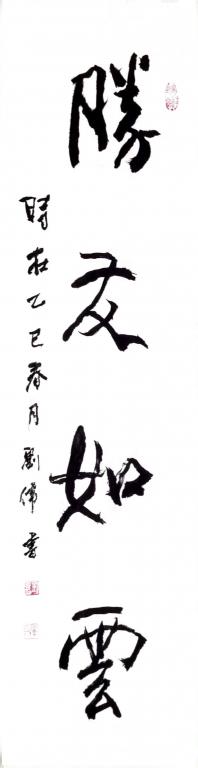 勝友如雲
時在乙巳春月劉偉書